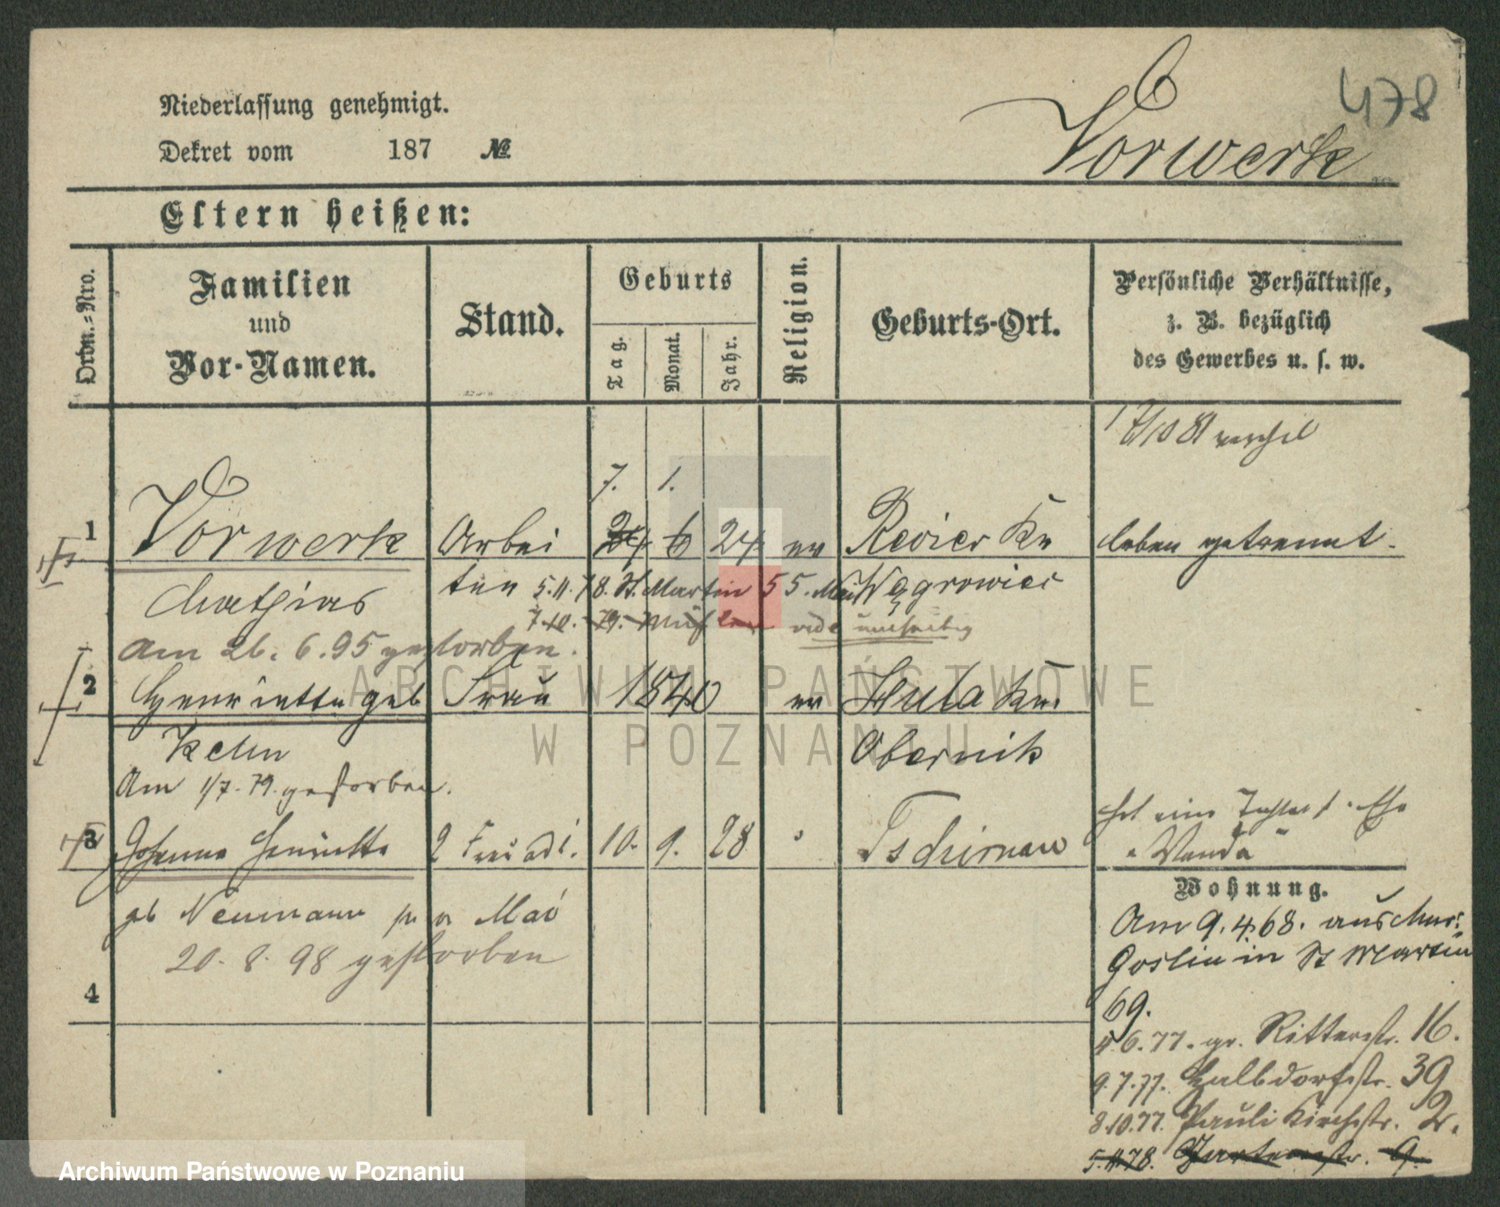 478
Niederlassung genehmigt.
Dekret vom 187 №
Vorwerk
Eltern heißen:
Ordn.-Nro.
Familien
und
Vor-Namen.
Stand.
Geburts
Tag.
Monat.
Jahr.
Religion.
Geburts-Ort.
Persönliche Verhältnisse,
z. B. bezüglich
des Gewerbes u. s. w.
17/10 81
7. 1.
1 Vorwerk Arbei 24 6 24 ev Revier Kr leben getrennt.
Mathias ter 5.11.78. St. Martin 55. Wągrowiec
7.10. 79. Mühlen vide umseitig
Am 26. 6. 95 gestorben.
2 Henriette geb Frau 1840 ev Huta Kr.
Kelm Obernik
Am 1/7. 79. gestorben.
3 Johanna Henriette 2 Frau 10. 9. 28 Tschirnau hat eine Tochter
Wanda
geb Neumann
20. 8. 98 gestorben
4
Wohnung.
Am 9. 4. 68. aus Mur.
Goslin in St Martin
69.
4.6.77. gr. Ritterstr. 16.
9.7.77. Halbdorfstr. 39
8.10.77. Pauli Kirchstr. 2.
5.11.78. Gartenstr. 9.
ARCHIWUM PAŃSTWOWE
W POZNANIU
Archiwum Państwowe w Poznaniu